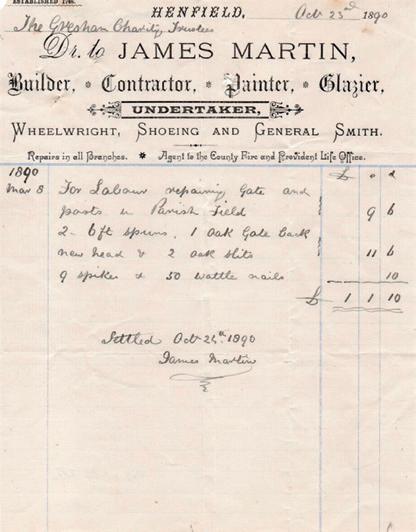 ESTABLISHED 1746.
HENFIELD, Octr 23rd 1890
The Gresham Charity Trustees
Dr. to JAMES MARTIN,
Builder, * Contractor, * Painter, * Glazier,
UNDERTAKER,
WHEELWRIGHT, SHOEING AND GENERAL SMITH.
Repairs in all Branches. * Agent to the County Fire and Provident Life Office.
1890 £ s d
Mar 8 For Labour repairing Gate and
posts in Parish Field 9 6
2 - 6ft spurs, 1 oak Gate back
new head & 2 oak slits 11 6
9 spikes & 50 wattle nails 10
£ 1 1 10
Settled Octr 24th 1890
James Martin